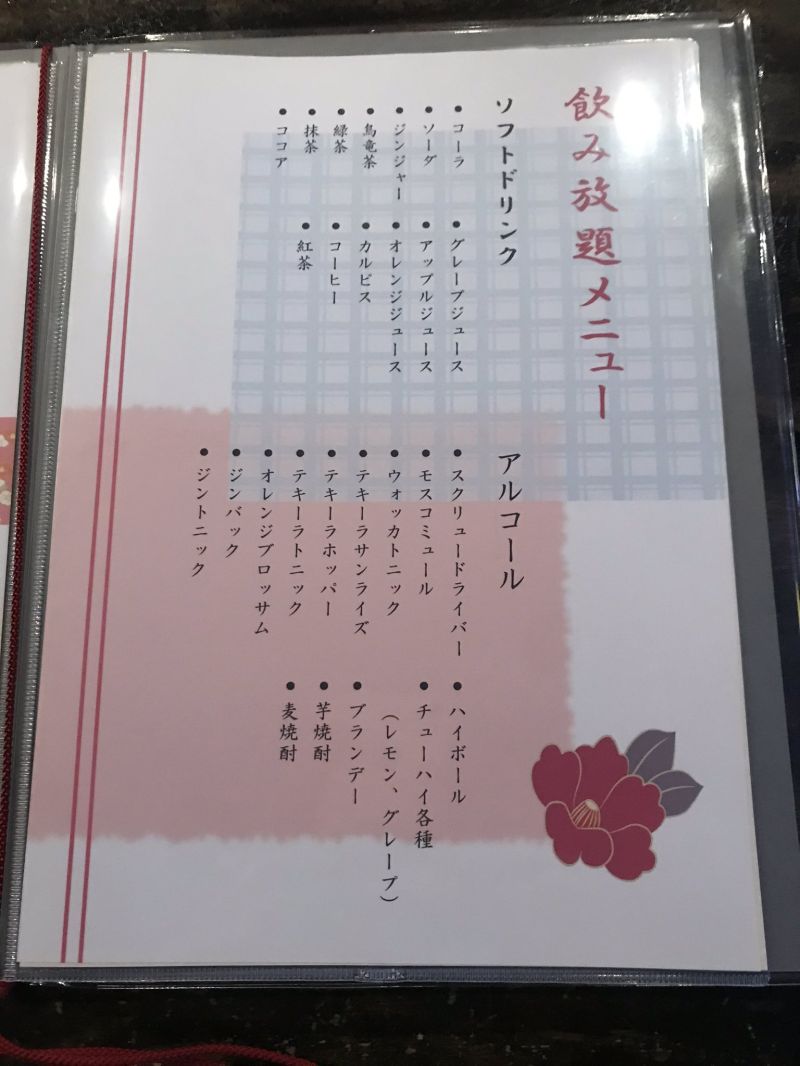 飲み放題メニュー
ソフトドリンク
● コーラ
● ソーダ
● ジンジャー
● 烏竜茶
● 緑茶
● 抹茶
● ココア
● グレープジュース
● アップルジュース
● オレンジジュース
● カルピス
● コーヒー
● 紅茶
アルコール
● スクリュードライバー
● モスコミュール
● ウォッカトニック
● テキーラサンライズ
● テキーラホッパー
● テキーラトニック
● オレンジブロッサム
● ジンバック
● ジントニック
● ハイボール
● チューハイ各種
（レモン、グレープ）
● ブランデー
● 芋焼酎
● 麦焼酎